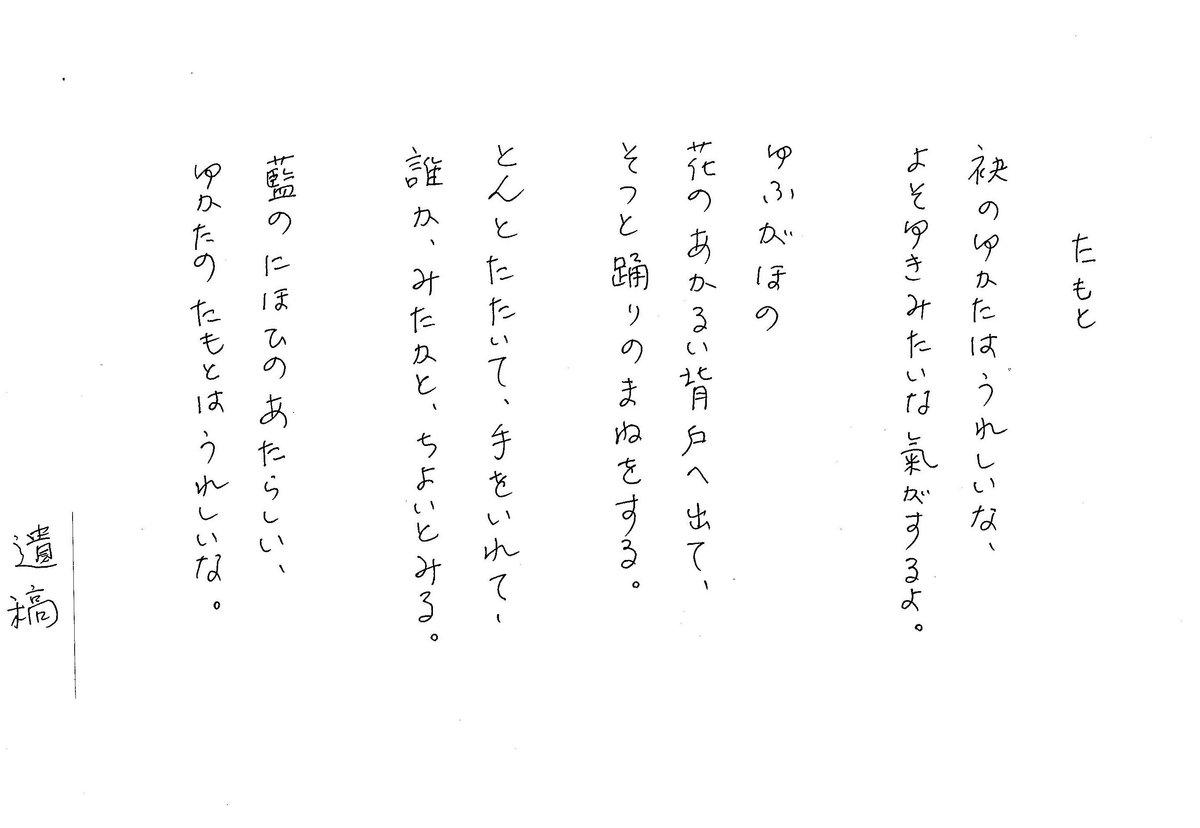 たもと
袂のゆかたはうれしいな、
よそゆきみたいな氣がするよ。
ゆふがほの
花のあかるい背戸へ出て、
そつと踊りのまねをする。
とんとたたいて、手をいれて、
誰か、みたかと、ちよいとみる。
藍のにほひのあたらしい、
ゆかたのたもとはうれしいな。
遺稿